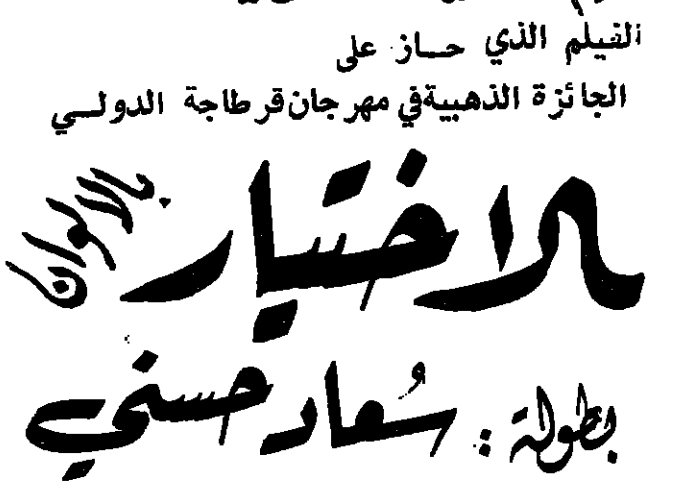 الفيلم الذي حاز على
الجائزة الذهبية في مهرجان قرطاجة الدولي
الاختيار بالالوان
بطولة : سُعاد حسني